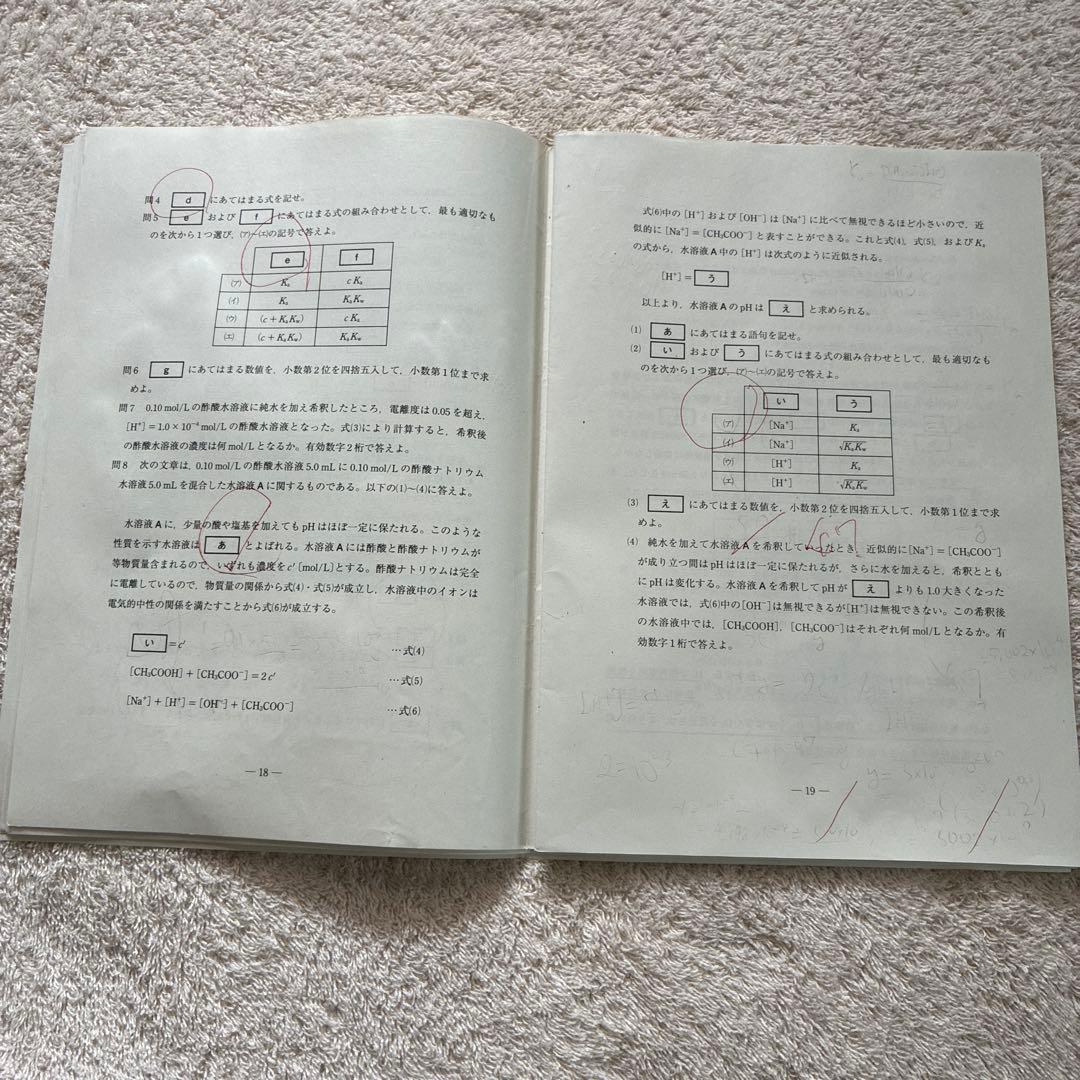 問4 d にあてはまる式を記せ。
問5 e および f にあてはまる式の組み合わせとして，最も適切なも
のを次から1つ選び，(ア)～(エ)の記号で答えよ。
e f
(ア) Ka cKa
(イ) Ka KaKw
(ウ) (c+KaKw) cKa
(エ) (c+KaKw) KaKw
問6 g にあてはまる数値を，小数第2位を四捨五入して，小数第1位まで求
めよ。
問7 0.10 mol/Lの酢酸水溶液に純水を加え希釈したところ，電離度は0.05を超え，
[H⁺]=1.0×10⁻⁴ mol/Lの酢酸水溶液となった。式(3)により計算すると，希釈後
の酢酸水溶液の濃度は何mol/Lとなるか。有効数字2桁で答えよ。
問8 次の文章は，0.10 mol/Lの酢酸水溶液5.0 mLに0.10 mol/Lの酢酸ナトリウム
水溶液5.0 mLを混合した水溶液Aに関するものである。以下の(1)～(4)に答えよ。
水溶液Aに，少量の酸や塩基を加えてもpHはほぼ一定に保たれる。このような
性質を示す水溶液は あ とよばれる。水溶液Aには酢酸と酢酸ナトリウムが
等物質量含まれるので，いずれも濃度をc′[mol/L]とする。酢酸ナトリウムは完全
に電離しているので，物質量の関係から式(4)・式(5)が成立し，水溶液中のイオンは
電気的中性の関係を満たすことから式(6)が成立する。
い =c′ …式(4)
[CH₃COOH]+[CH₃COO⁻]=2c′ …式(5)
[Na⁺]+[H⁺]=[OH⁻]+[CH₃COO⁻] …式(6)
—18—
式(6)中の[H⁺]および[OH⁻]は[Na⁺]に比べて無視できるほど小さいので，近
似的に[Na⁺]=[CH₃COO⁻]と表すことができる。これと式(4)，式(5)，およびKa
の式から，水溶液A中の[H⁺]は次式のように近似される。
[H⁺]= う
以上より，水溶液AのpHは え と求められる。
(1) あ にあてはまる語句を記せ。
(2) い および う にあてはまる式の組み合わせとして，最も適切なも
のを次から1つ選び，(ア)～(エ)の記号で答えよ。
い う
(ア) [Na⁺] Ka
(イ) [Na⁺] √KaKw
(ウ) [H⁺] Ka
(エ) [H⁺] √KaKw
(3) え にあてはまる数値を，小数第2位を四捨五入して，小数第1位まで求
めよ。
(4) 純水を加えて水溶液Aを希釈していったとき，近似的に[Na⁺]=[CH₃COO⁻]
が成り立つ間はpHはほぼ一定に保たれるが，さらに水を加えると，希釈ととも
にpHは変化する。水溶液Aを希釈してpHが え よりも1.0大きくなった
水溶液では，式(6)中の[OH⁻]は無視できるが[H⁺]は無視できない。この希釈後
の水溶液中では，[CH₃COOH]，[CH₃COO⁻]はそれぞれ何mol/Lとなるか。有
効数字1桁で答えよ。
—19—